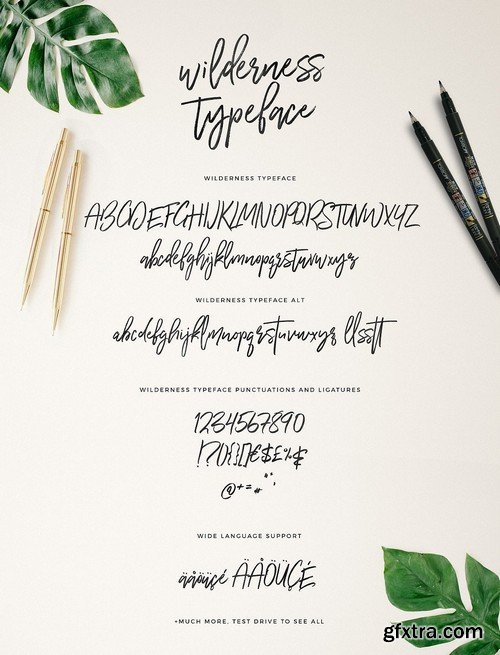 wilderness
Typeface
WILDERNESS TYPEFACE
ABCDEFGHIJKLMNOPQRSTUVWXYZ
abcdefghijklmnopqrstuvwxyz
WILDERNESS TYPEFACE ALT
abcdefghijklmnopqrstuvwxyz llsstt
WILDERNESS TYPEFACE PUNCTUATIONS AND LIGATURES
1234567890
!?(){}[]€$£%&
@+=#"*;
WIDE LANGUAGE SUPPORT
äåöüçé ÄÅÖÜÇÉ
+MUCH MORE, TEST DRIVE TO SEE ALL
gfxtra.com